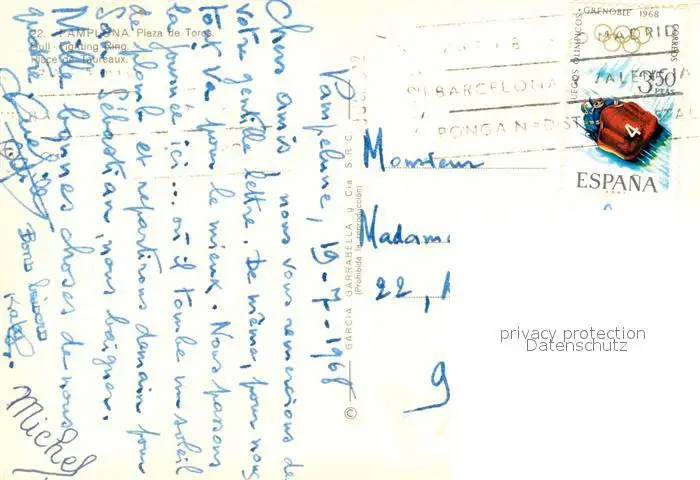 22. PAMPLONA Plaza de Toros.
Bull-Fighting Ring.
Place de Taureaux.
Pampelune, 19-7-1968
Chers amis, nous vous remercions de
votre gentille lettre. De même, pour nous
tout va pour le mieux. Nous passons
la journée ici... où il tombe un soleil
de plomb et repartirons demain pour
San-Sébastian, nous baigner.
Mille bonnes choses de nous
quatre.
Bons
Michel
© GARCIA GARRABELLA y Cia S.R.C.
(Prohibida la reproducción)
Monsieur
Madame
22,
9
JUEGOS OLIMPICOS - GRENOBLE 1968
CORREOS
3,50
PTAS
4
ESPAÑA
MADRID
BARCELONA
VALENCIA
PONGA Nº DIST
privacy protection
Datenschutz